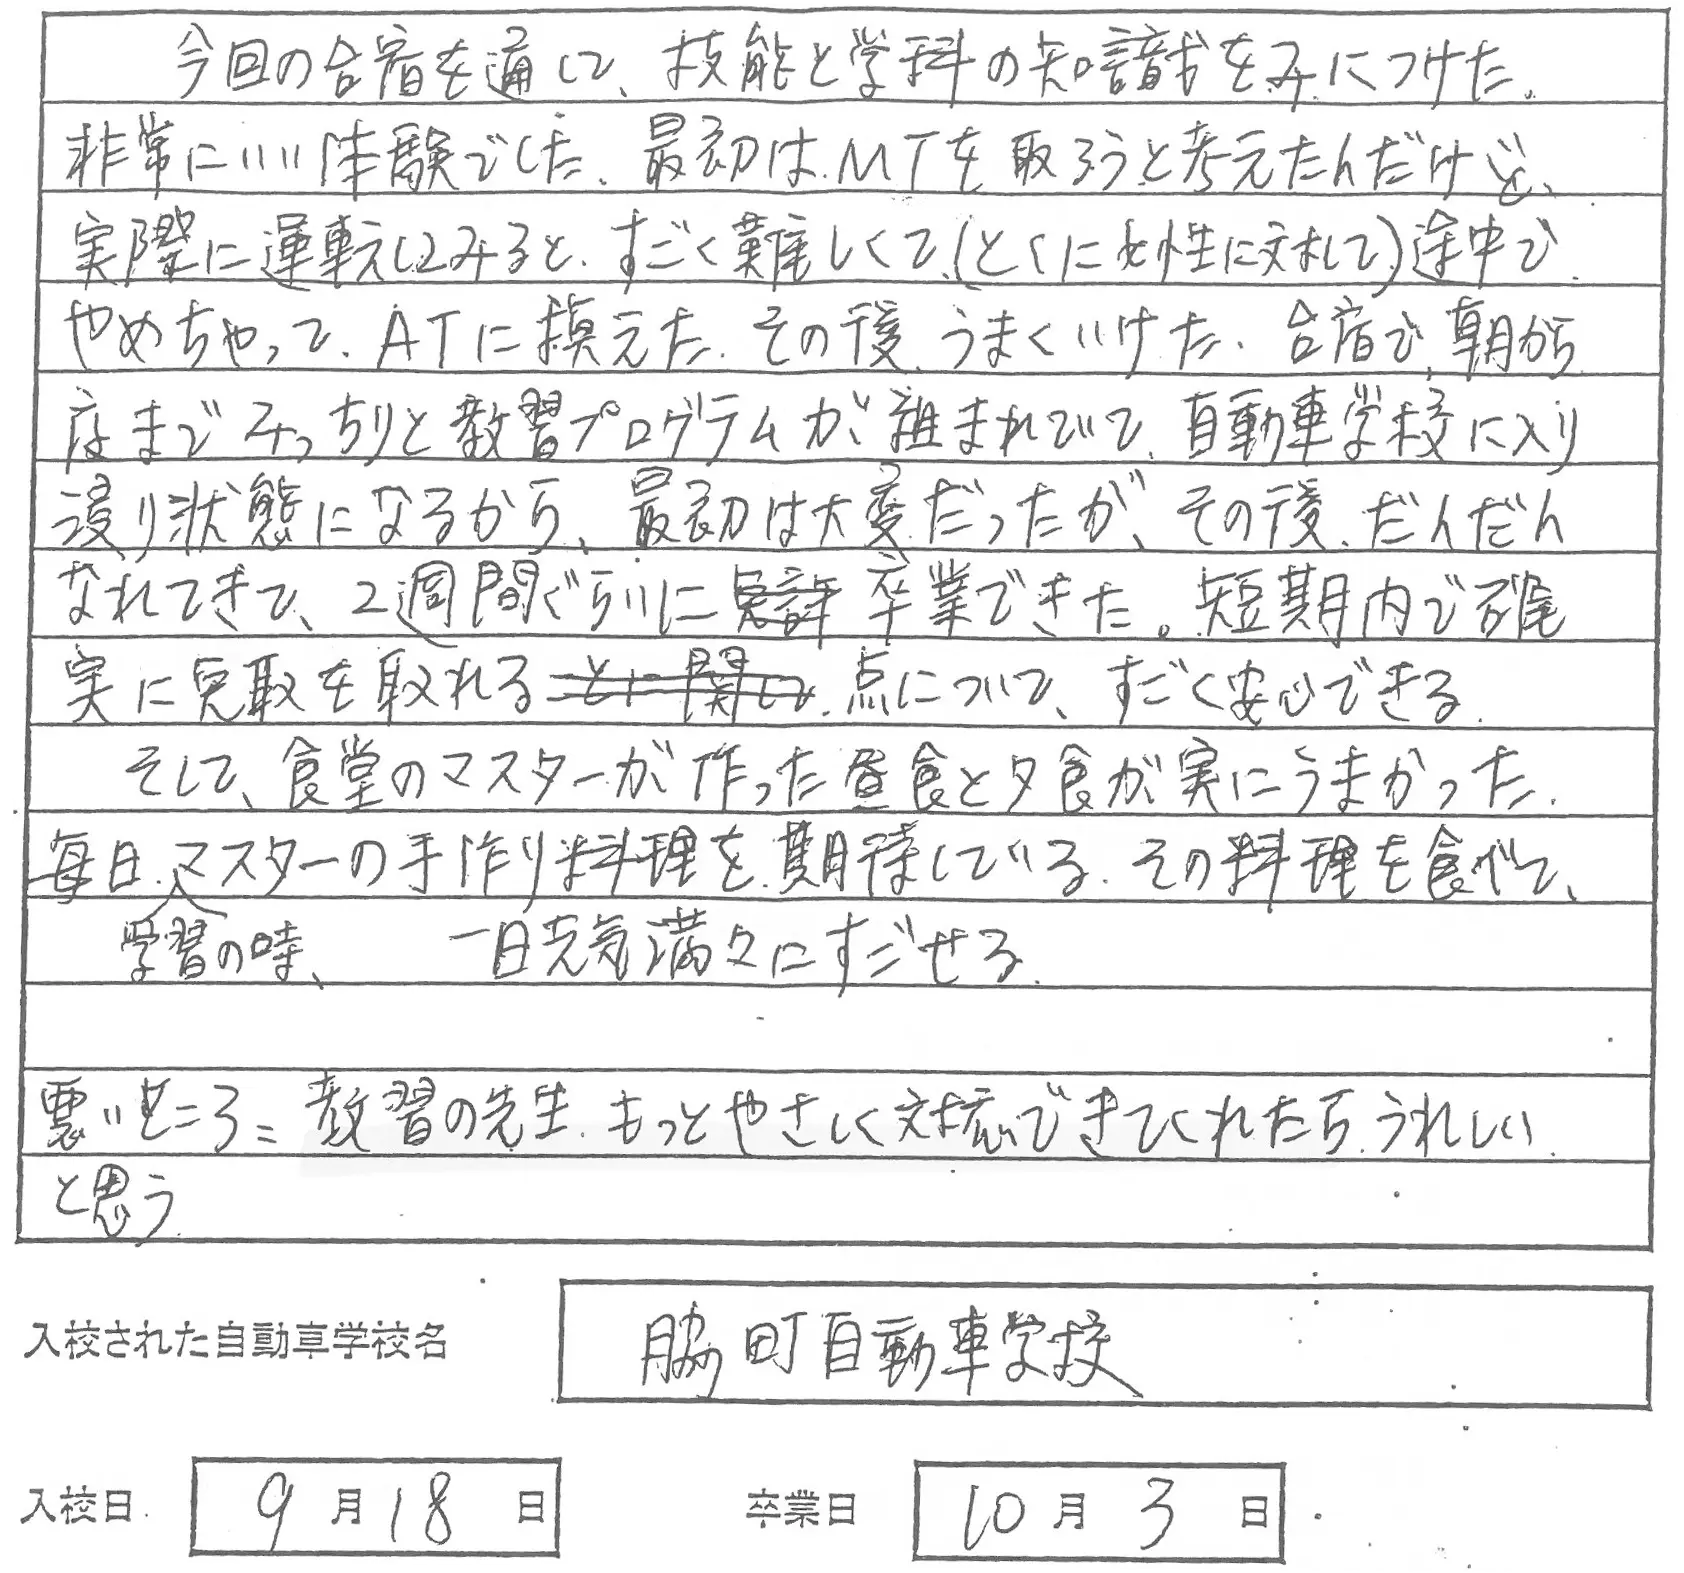 今回の合宿を通して、技能と学科の知識をみにつけた。
非常にいい体験でした。最初はMTを取ろうと考えたんだけど、
実際に運転してみると、すごく難しくて、(とくに女性に対して)途中で
やめちゃって、ATに換えた。その後、うまくいけた。合宿で、朝から
夜までみっちりと教習プログラムが組まれでいて、自動車学校に入り
浸り状態になるから、最初は大変だったが、その後、だんだん
なれてきて、2週間ぐらいに卒業できた。短期内で確
実に免取を取れる点について、すごく安心できる。
そして、食堂のマスターが作った昼食と夕食が実にうまかった。
毎日、マスターの手作り料理を期待している。その料理を食べて、
学習の時、一日元気満々にすごせる。
悪いところ:教習の先生、もっとやさしく対応できてくれたら、うれしい
と思う
入校された自動車学校名 脇町自動車学校
入校日 9月18日 卒業日 10月3日